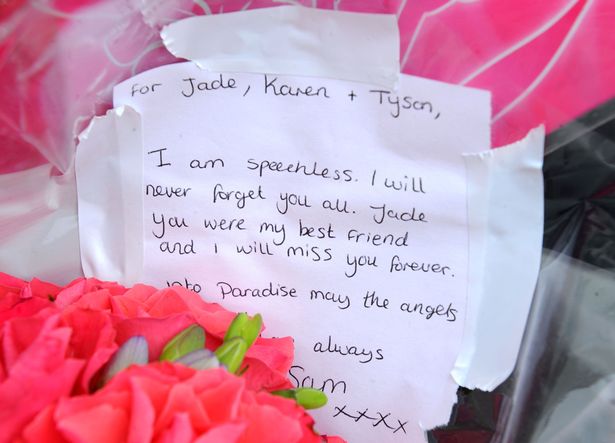 For Jade, Karen + Tyson,
I am speechless. I will
never forget you all. Jade
You were my best friend
and I will miss you forever.
into Paradise may the angels
always
Sam
xxxx